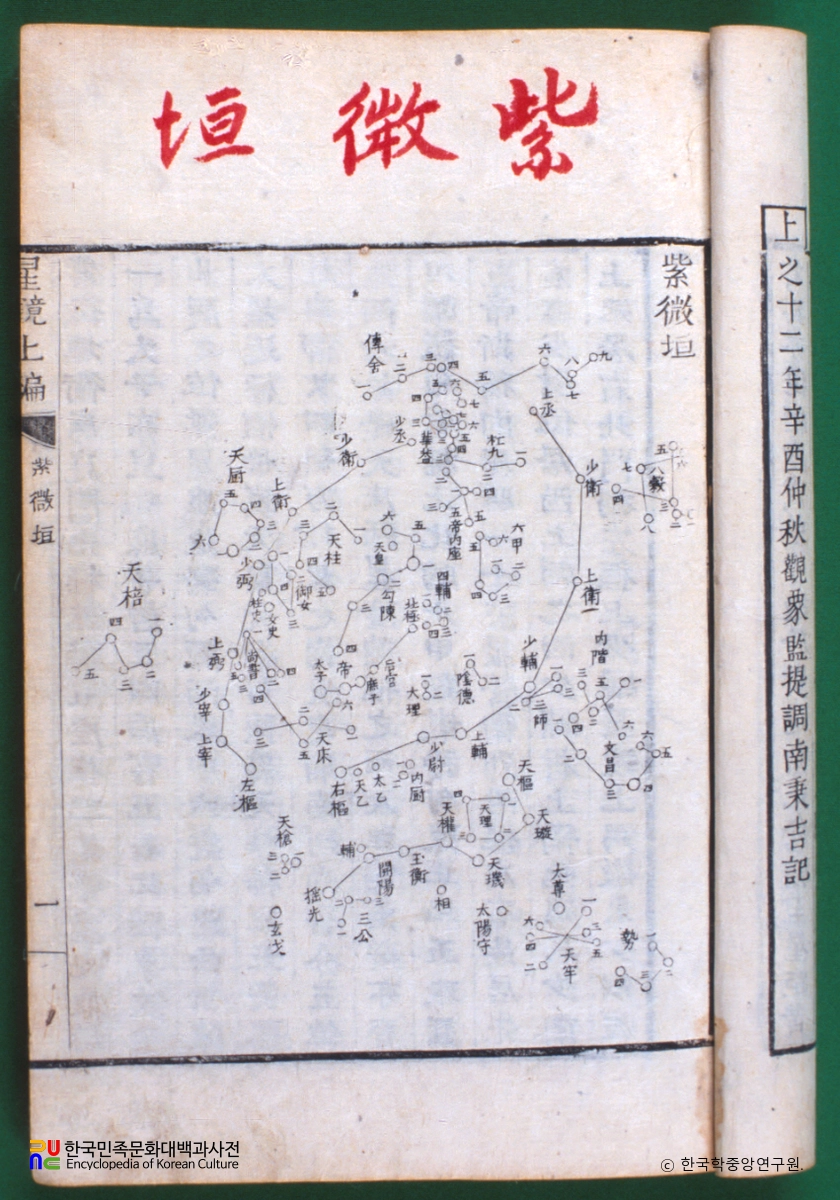 紫微垣
上之十二年辛酉仲秋觀象監提調南秉吉記
紫微垣
傳舍
一
二
三
四
五
六
七
八
九
上丞
少丞
華蓋
杠九
少衛
少衛
上衛
上衛
八穀
天厨
天柱
天皇
五帝内座
六甲
四輔
勾陳
北極
御女
女史
柱史
尚書
少弼
上弼
天棓
少宰
上宰
左樞
太子
帝
庶子
后宮
大理
陰德
少輔
上輔
三師
内階
文昌
天床
右樞
天乙
太乙
内厨
少尉
天樞
天璇
天璣
天權
天理
玉衡
開陽
輔
搖光
三公
相
天槍
玄戈
太陽守
太尊
天牢
勢
星鏡上編
紫微垣
一
한국민족문화대백과사전
Encyclopedia of Korean Culture
© 한국학중앙연구원.